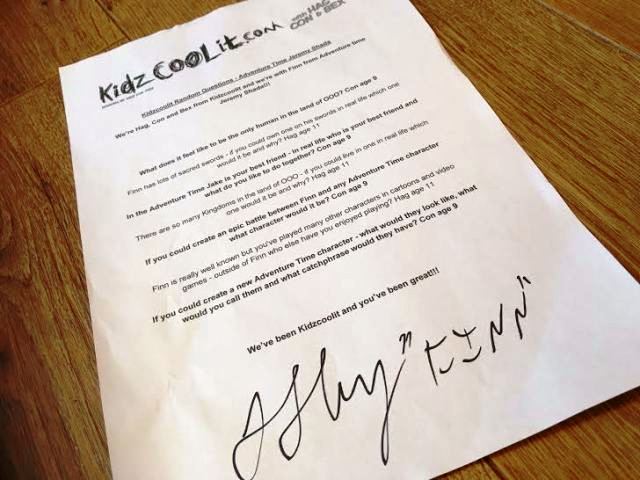 Kidz COOLit.com
with HAG
CON & BEX
Kidzcoolit Random Questions - Adventure Time Jeremy Shada
We're Hag, Con and Bex from Kidzcoolit and we're with Finn from Adventure time
Jeremy Shada!!!
What does it feel like to be the only human in the land of OOO? Con age 9
Finn has lots of sacred swords - if you could own one on his swords in real life which one
would it be and why? Hag age 11
In the Adventure Time Jake is your best friend - in real life who is your best friend and
what do you like to do together? Con age 9
There are so many Kingdoms in the land of OOO - if you could live in one in real life which
one would it be and why? Hag age 11
If you could create an epic battle between Finn and any Adventure Time character
what character would it be? Con age 9
Finn is really well known but you've played many other characters in cartoons and video
games - outside of Finn who else have you enjoyed playing? Hag age 11
If you could create a new Adventure Time character - what would they look like, what
would you call them and what catchphrase would they have? Con age 9
We've been Kidzcoolit and you've been great!!!
"FINN"